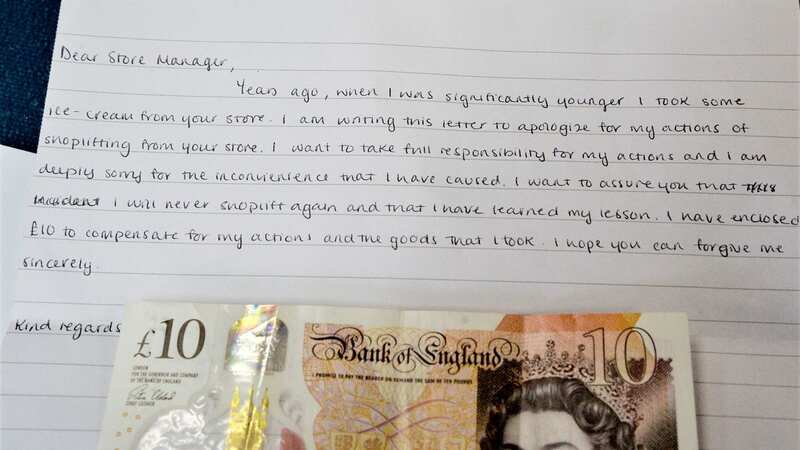 Dear Store Manager,
Years ago, when I was significantly younger I took some
ice-cream from your store. I am writing this letter to apologize for my actions of
shoplifting from your store. I want to take full responsibility for my actions and I am
deeply sorry for the inconvienience that I have caused. I want to assure you that this
incident I will never shoplift again and that I have learned my lesson. I have enclosed
£10 to compensate for my actions and the goods that I took. I hope you can forgive me
sincerely.
Kind regards
£10
Bank of England
10
LONDON
FOR THE GOVERNOR AND COMPANY
OF THE BANK OF ENGLAND
CHIEF CASHIER
I PROMISE TO PAY THE BEARER ON DEMAND THE SUM OF TEN POUNDS